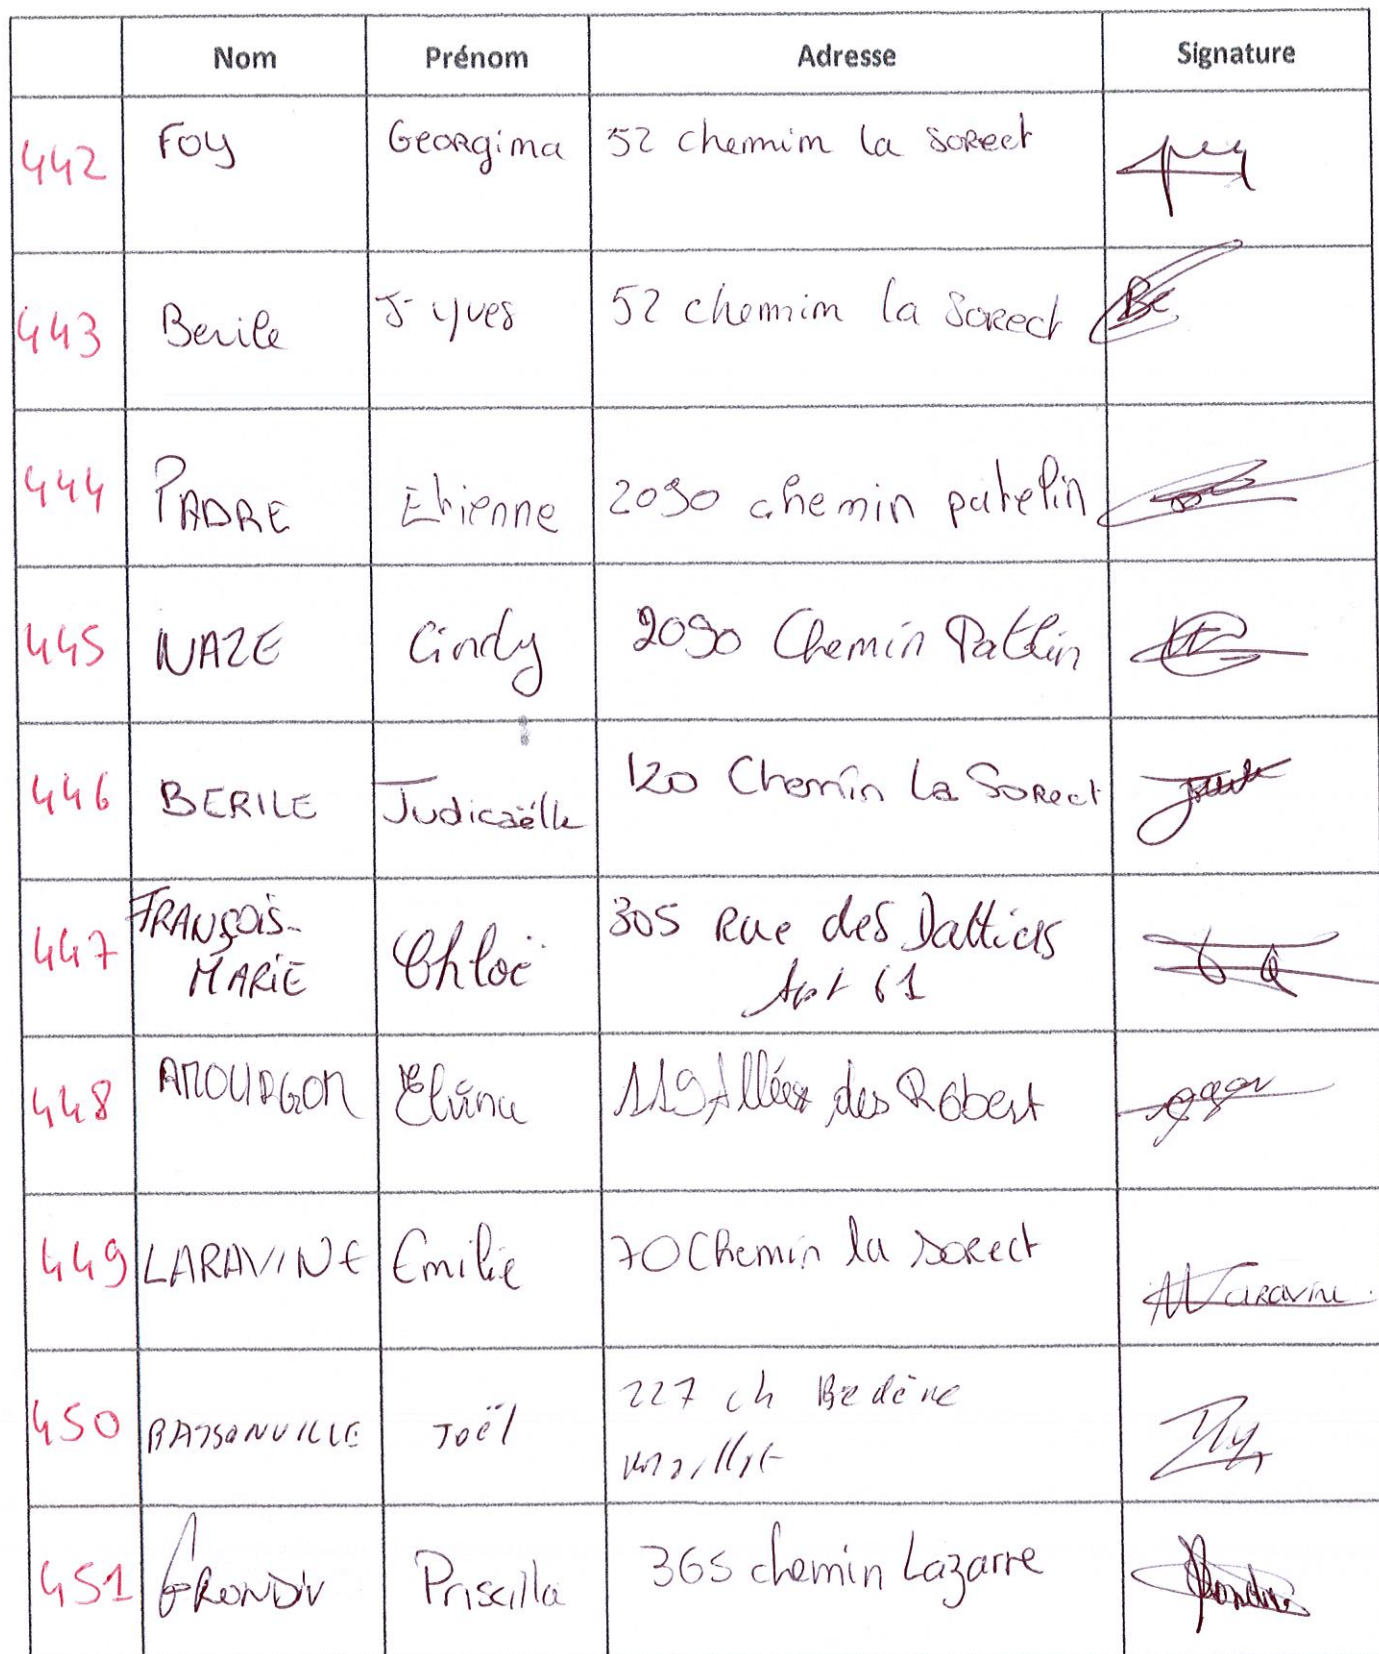 Nom Prénom Adresse Signature
442 FOY Georgina 52 chemin la SOREct
443 Berile J-yves 52 chemin la Sorect
444 PADRE Etienne 2090 chemin patelin
445 NAZE Cindy 2090 Chemin Patlin
446 BERILE Judicaëlle 120 Chemin La Sorect
447 FRANÇOIS- Chloë 305 Rue des Dattiers
MARIE Apt 61
448 AMOURGON Elvina 119 Allée des Robert
449 LARAVINE Emilie 70 Chemin la sorect
Laravine
450 Joël 227 ch Bedène
451 GRONDIN Priscilla 365 chemin Lazarre